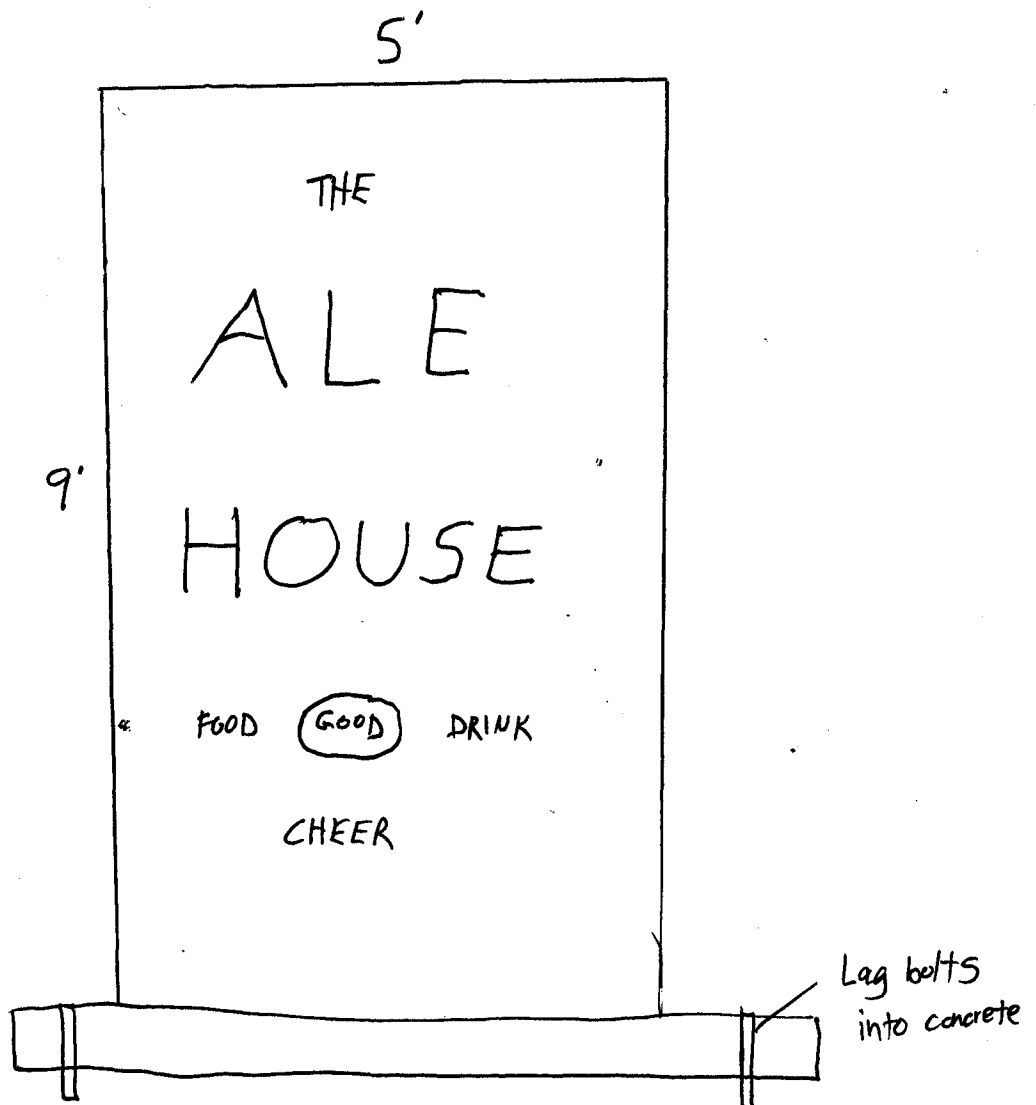 5'
THE
ALE
9'
HOUSE
FOOD GOOD DRINK
CHEER
Lag bolts
into concrete